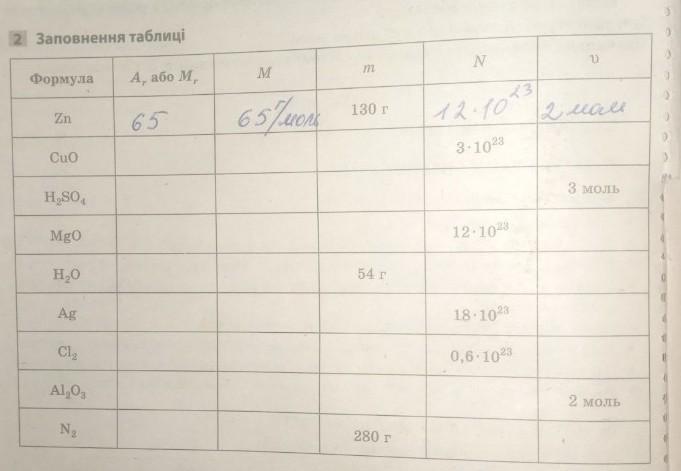 2 Заповнення таблиці
Формула Aᵣ або Mᵣ M m N υ
Zn 65 65 г/моль 130 г 12·10²³ 2 моль
CuO 3·10²³
H₂SO₄ 3 моль
MgO 12·10²³
H₂O 54 г
Ag 18·10²³
Cl₂ 0,6·10²³
Al₂O₃ 2 моль
N₂ 280 г